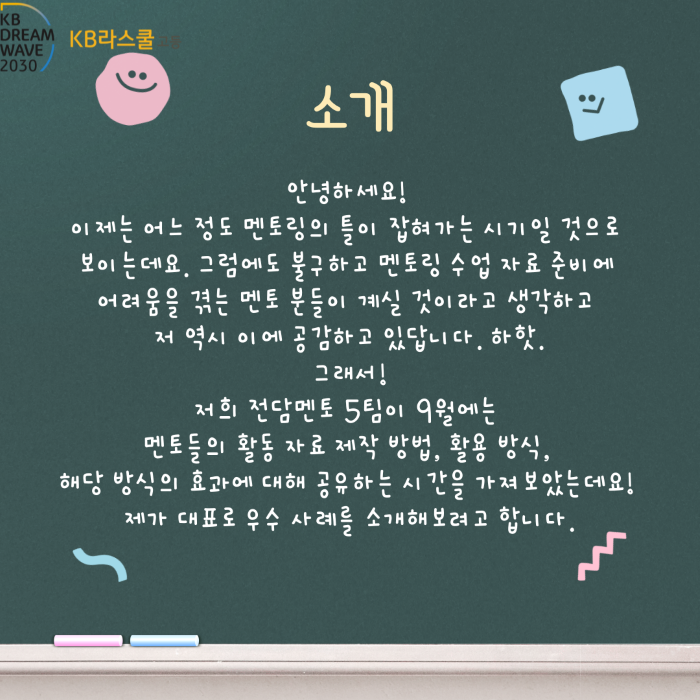 KB
DREAM
WAVE
2030
KB라스쿨
소개
안녕하세요!
이제는 어느 정도 멘토링의 틀이 잡혀가는 시기일 것으로
보이는데요. 그럼에도 불구하고 멘토링 수업 자료 준비에
어려움을 겪는 멘토 분들이 계실 것이라고 생각하고
저 역시 이에 공감하고 있답니다. 하핫.
그래서!
저희 전담멘토 5팀이 9월에는
멘토들의 활동 자료 제작 방법, 활용 방식,
해당 방식의 효과에 대해 공유하는 시간을 가져보았는데요!
제가 대표로 우수 사례를 소개해보려고 합니다.